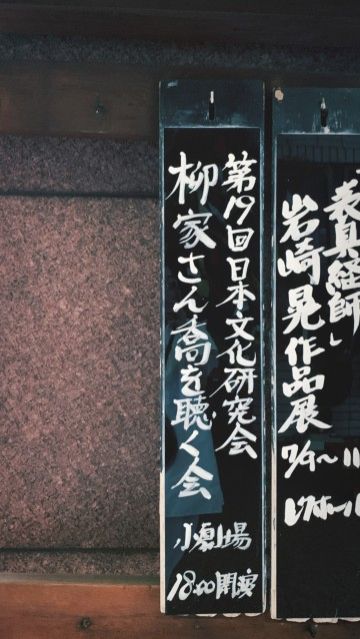 第19回日本文化研究会
柳家さん喬を聴く会
小劇場
18:00開演
表具経師」
岩崎晃作品展
7/9〜11